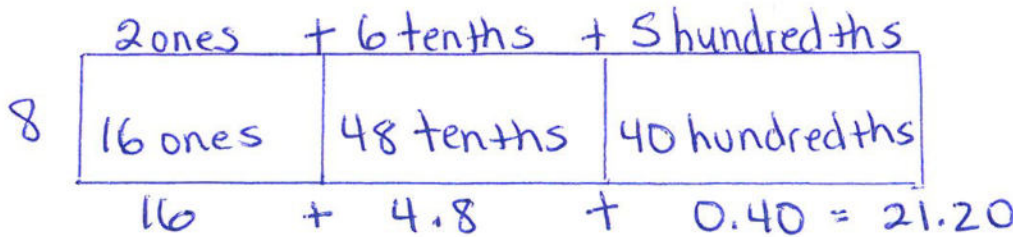 2 ones + 6 tenths + 5 hundredths
8 16 ones 48 tenths 40 hundredths
16 + 4.8 + 0.40 = 21.20